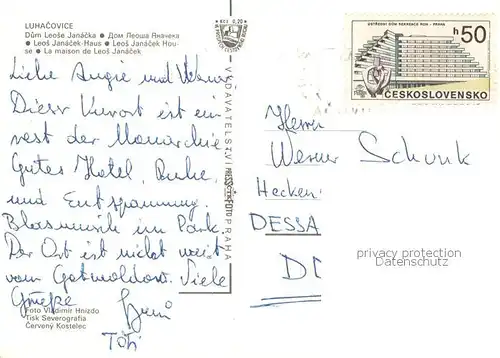 LUHAČOVICE
Dům Leoše Janáčka ● Дом Леоша Яначека
● Leoš Janáček-Haus ● Leoš Janáček Hou-
se ● La maison de Leoš Janáček
Liebe Angie und Werner
Dieser Kurort ist ein
rest der Monarchie.
Gutes Hotel, Ruhe,
und Entspannung.
Blasmusik im Park.
Der Ort ist nicht weit
vom Gottwaldow. Viele
Grüße
Foto Vladimír Hnízdo
Tisk Severografia
Červený Kostelec
Kčs 0,20
VYDAVATELSTVÍ PRESSFOTO PRAHA
ÚSTŘEDNÍ DŮM REKREACE ROH - PRAHA
h 50
ČESKOSLOVENSKO
Herrn
Werner Schunk
Hecken
DESSA
privacy protection
Datenschutz